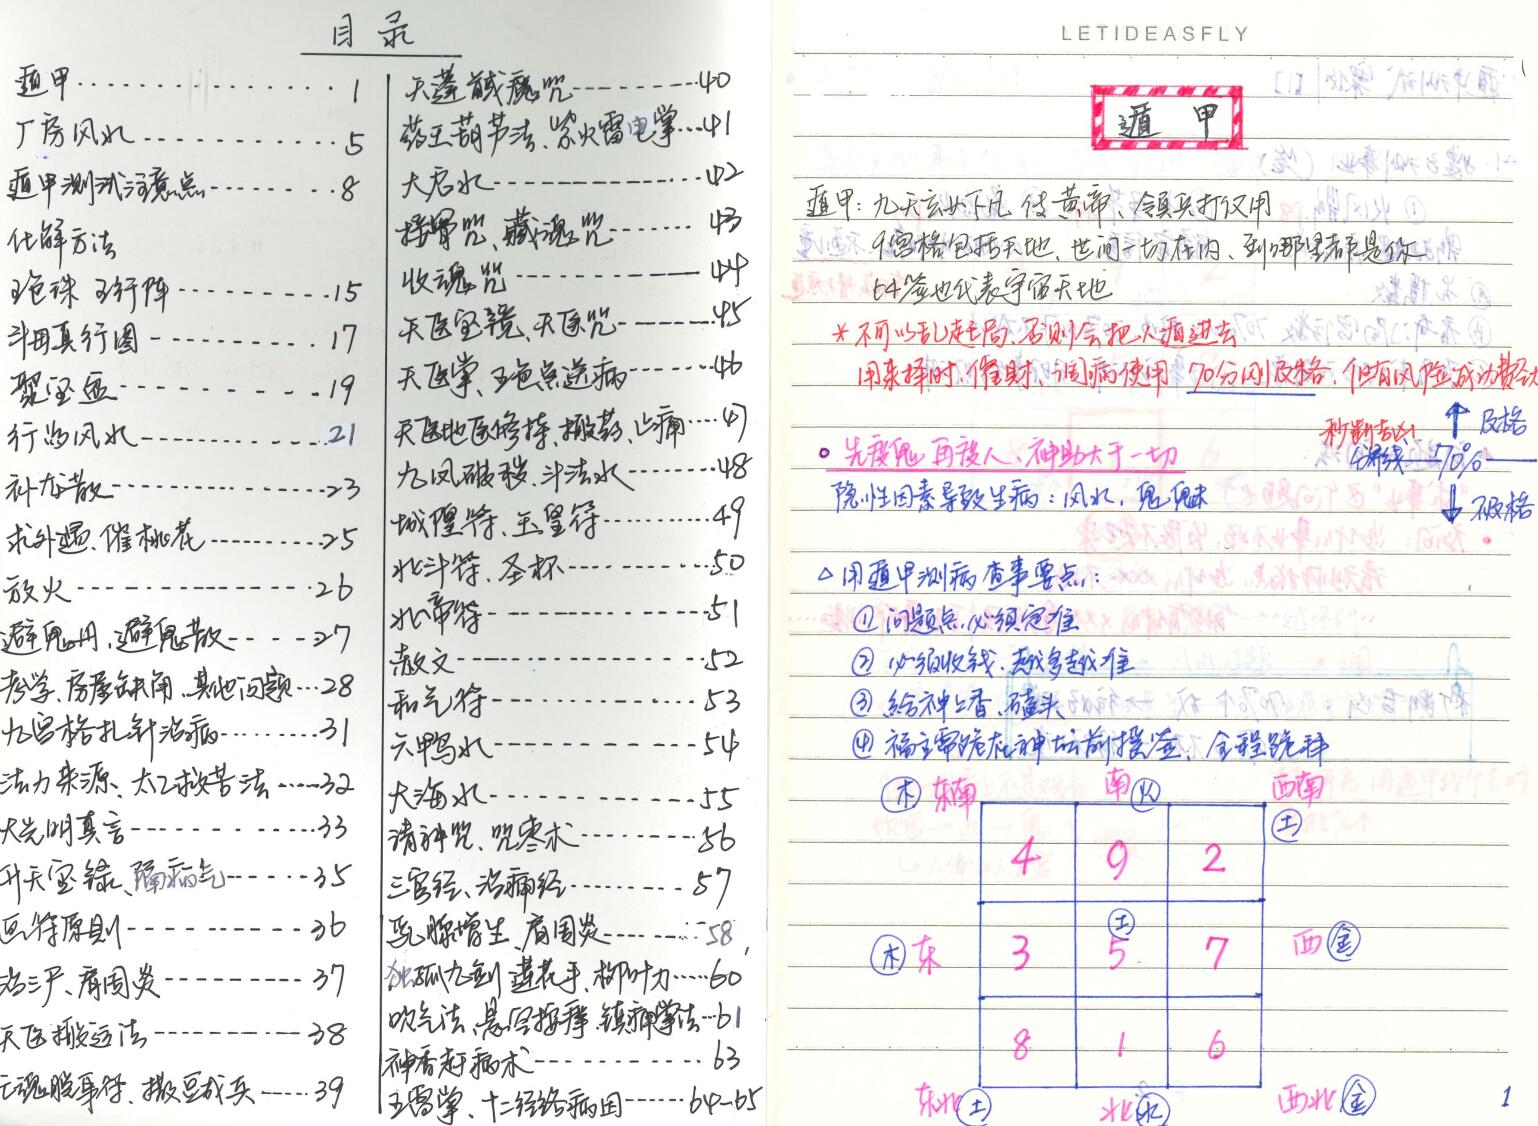 目录
遁甲 1
厂房风水 5
遁甲测试注意点 8
化解方法
五色珠 五行阵 15
斗母真行图 17
聚宝盆 19
行为风水 21
补龙散 23
求外遇、催桃花 25
放火 26
避鬼丹、避鬼散 27
考学、房屋缺角、其他问题 28
九宫格扎针治病 31
法力来源、太乙救苦法 32
大光明真言 33
升天宝箓、隔病气 35
画符原则 36
治三尸、肩周炎 37
天医搬运法 38
亡魂脱身符、撒豆成兵 39
天蓬馘魔咒 40
药王葫芦法、紫火雷电掌 41
大启水 42
接骨咒、藏魂咒 43
收魂咒 44
天医宝镜、天医咒 45
天医掌、五色点送病 46
天医地医修持、撤药、止痛 47
九凤破秽、斗法水 48
城隍符、玉皇符 49
北斗符、圣杯 50
北帝符 51
散文 52
和气符 53
六甲鸟水 54
大海水 55
请神咒、咒枣术 56
三官经、治病经 57
乳腺增生、肩周炎 58
独孤九剑 莲花手、柳叶刀 60
吹气法、悬空按摩、镇痛掌法 61
神香赶病术 63
五雷掌、十二经络病因 64-65
LETIDEASFLY
遁甲
遁甲：九天玄女下凡 传黄帝、领兵打仗用
9宫格包括天地、世间一切在内、到哪里都是你
64签也代表宇宙天地
* 不可以乱起局、否则会把人遁进去
用来择时、催财、调病使用 70分刚及格、但有风险 成功费劲
秒判吉凶!
分界线 70%
及格
不及格
先度鬼 再度人、神助大于一切
隐性因素导致生病：风水，鬼魅
△用遁甲测病查事要点：
① 问题点必须定准
② 必须收钱、越多越准
③ 给神上香、磕头
④ 福主需跪在神坛前摇签、全程跪拜
木 东南 南 火 西南 土
4 9 2
木 东 3 土 5 7 西 金
8 1 6
东北 土 北 水 西北 金
1